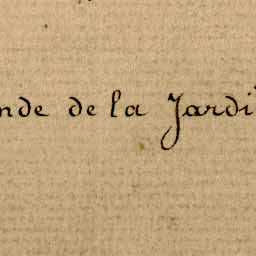 nde de la Jardi